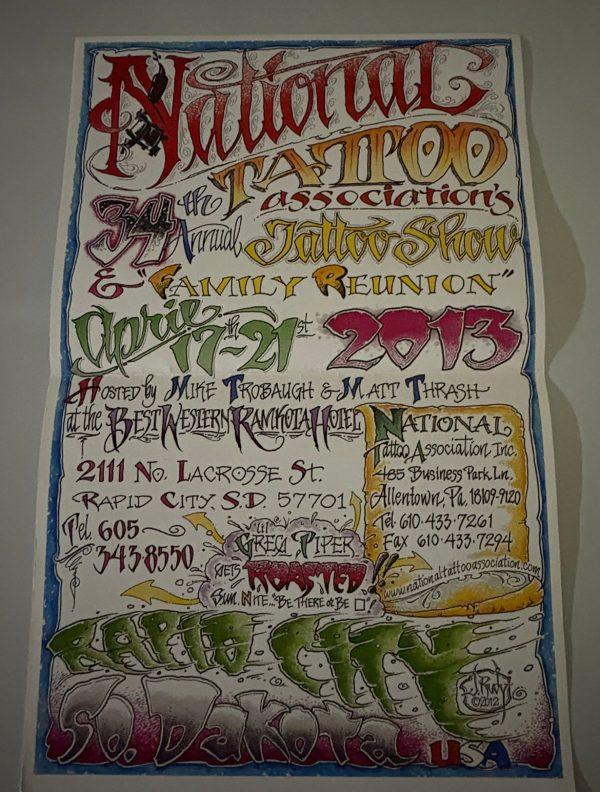 National
Tattoo
Association's
34th Annual Tattoo Show
& "Family Reunion"
April 17th-21st 2013
Hosted by Mike Trobaugh & Matt Thrash
at the Best Western Ramkota Hotel
2111 No. Lacrosse St.
Rapid City, S.D. 57701
Tel. 605
343-8550
National
Tattoo Association Inc.
485 Business Park Ln.
Allentown, Pa. 18109-9120
Tel. 610·433·7261
Fax 610·433·7294
www.nationaltattooassociation.com
Lil'
Greg Piper
Gets Roasted!!
Sun. Nite.. "Be There or Be □"!
Rapid City
So. Dakota
USA
©2012